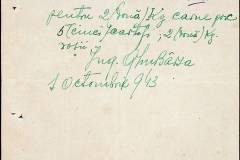 pentru 2 (două) kg carne porc
5 (cinci) cartofi, 2 (două) kg.
roșii
Ing. Ghubassa
1 Octombrie 943